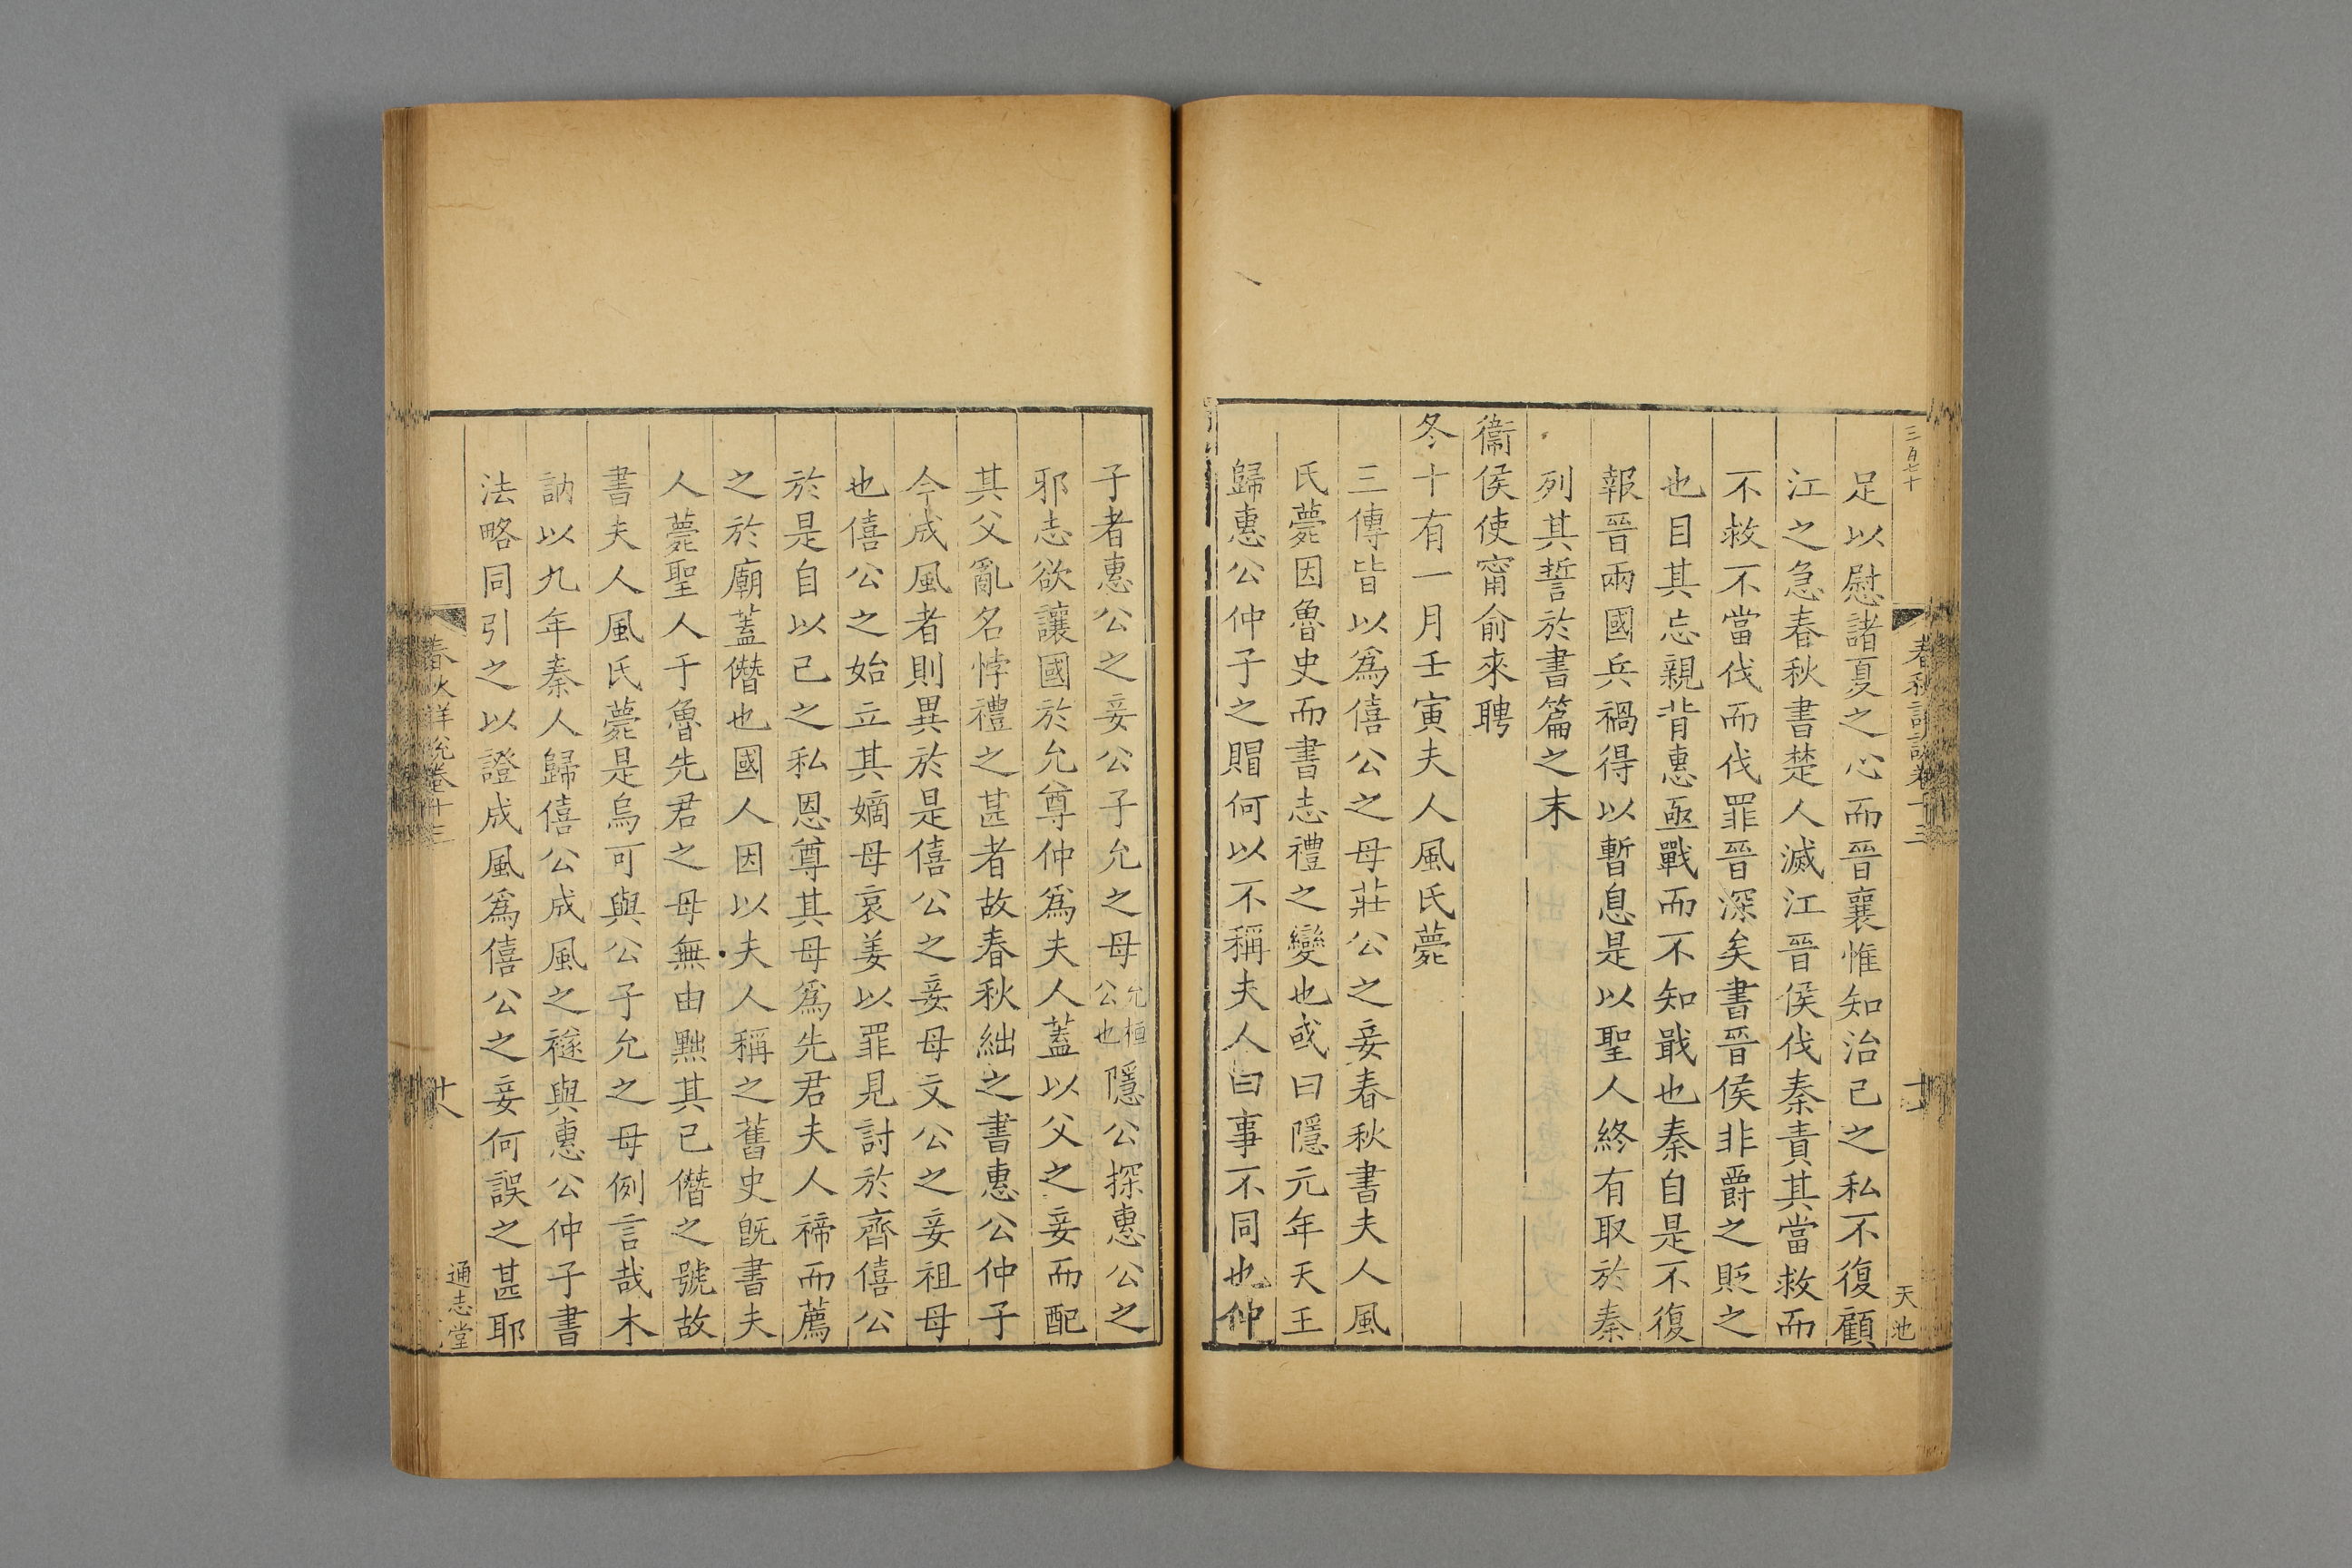 三百七十
春秋詳說卷十三
天池
足以慰諸夏之心而晉襄惟知治己之私不復顧
江之急春秋書楚人滅江晉侯伐秦責其當救而
不救不當伐而伐罪晉深矣書晉侯非爵之貶之
也目其忘親背惠亟戰而不知戢也秦自是不復
報晉兩國兵禍得以暫息是以聖人終有取於秦
列其誓於書篇之末
衞侯使甯俞來聘
冬十有一月壬寅夫人風氏薨
三傳皆以爲僖公之母莊公之妾春秋書夫人風
氏薨因魯史而書志禮之變也或曰隱元年天王
歸惠公仲子之賵何以不稱夫人曰事不同也仲
子者惠公之妾公子允之母允桓公也隱公探惠公之
邪志欲讓國於允尊仲爲夫人蓋以父之妾而配
其父亂名悖禮之甚者故春秋絀之書惠公仲子
今成風者則異於是僖公之妾母文公之妾祖母
也僖公之始立其嫡母哀姜以罪見討於齊僖公
於是自以己之私恩尊其母爲先君夫人禘而薦
之於廟蓋僭也國人因以夫人稱之舊史旣書夫
人薨聖人于魯先君之母無由黜其已僭之號故
書夫人風氏薨是烏可與公子允之母例言哉木
訥以九年秦人歸僖公成風之襚與惠公仲子書
法略同引之以證成風爲僖公之妾何誤之甚耶
春秋詳說卷十三
廿八
通志堂